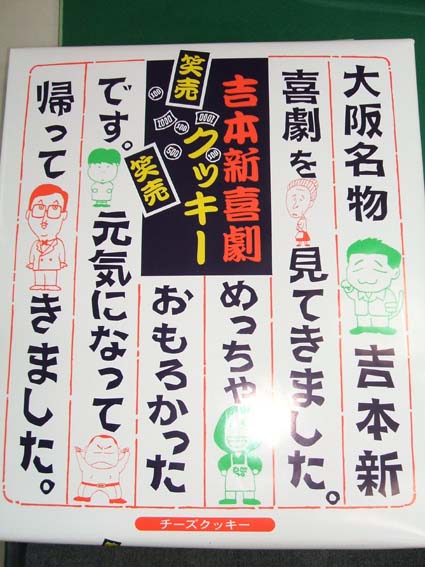 大阪名物 吉本新
喜劇を見てきました。
吉本新喜劇
クッキー
笑売
笑売
めっちゃ
おもろかった
です。元気になって
帰ってきました。
チーズクッキー